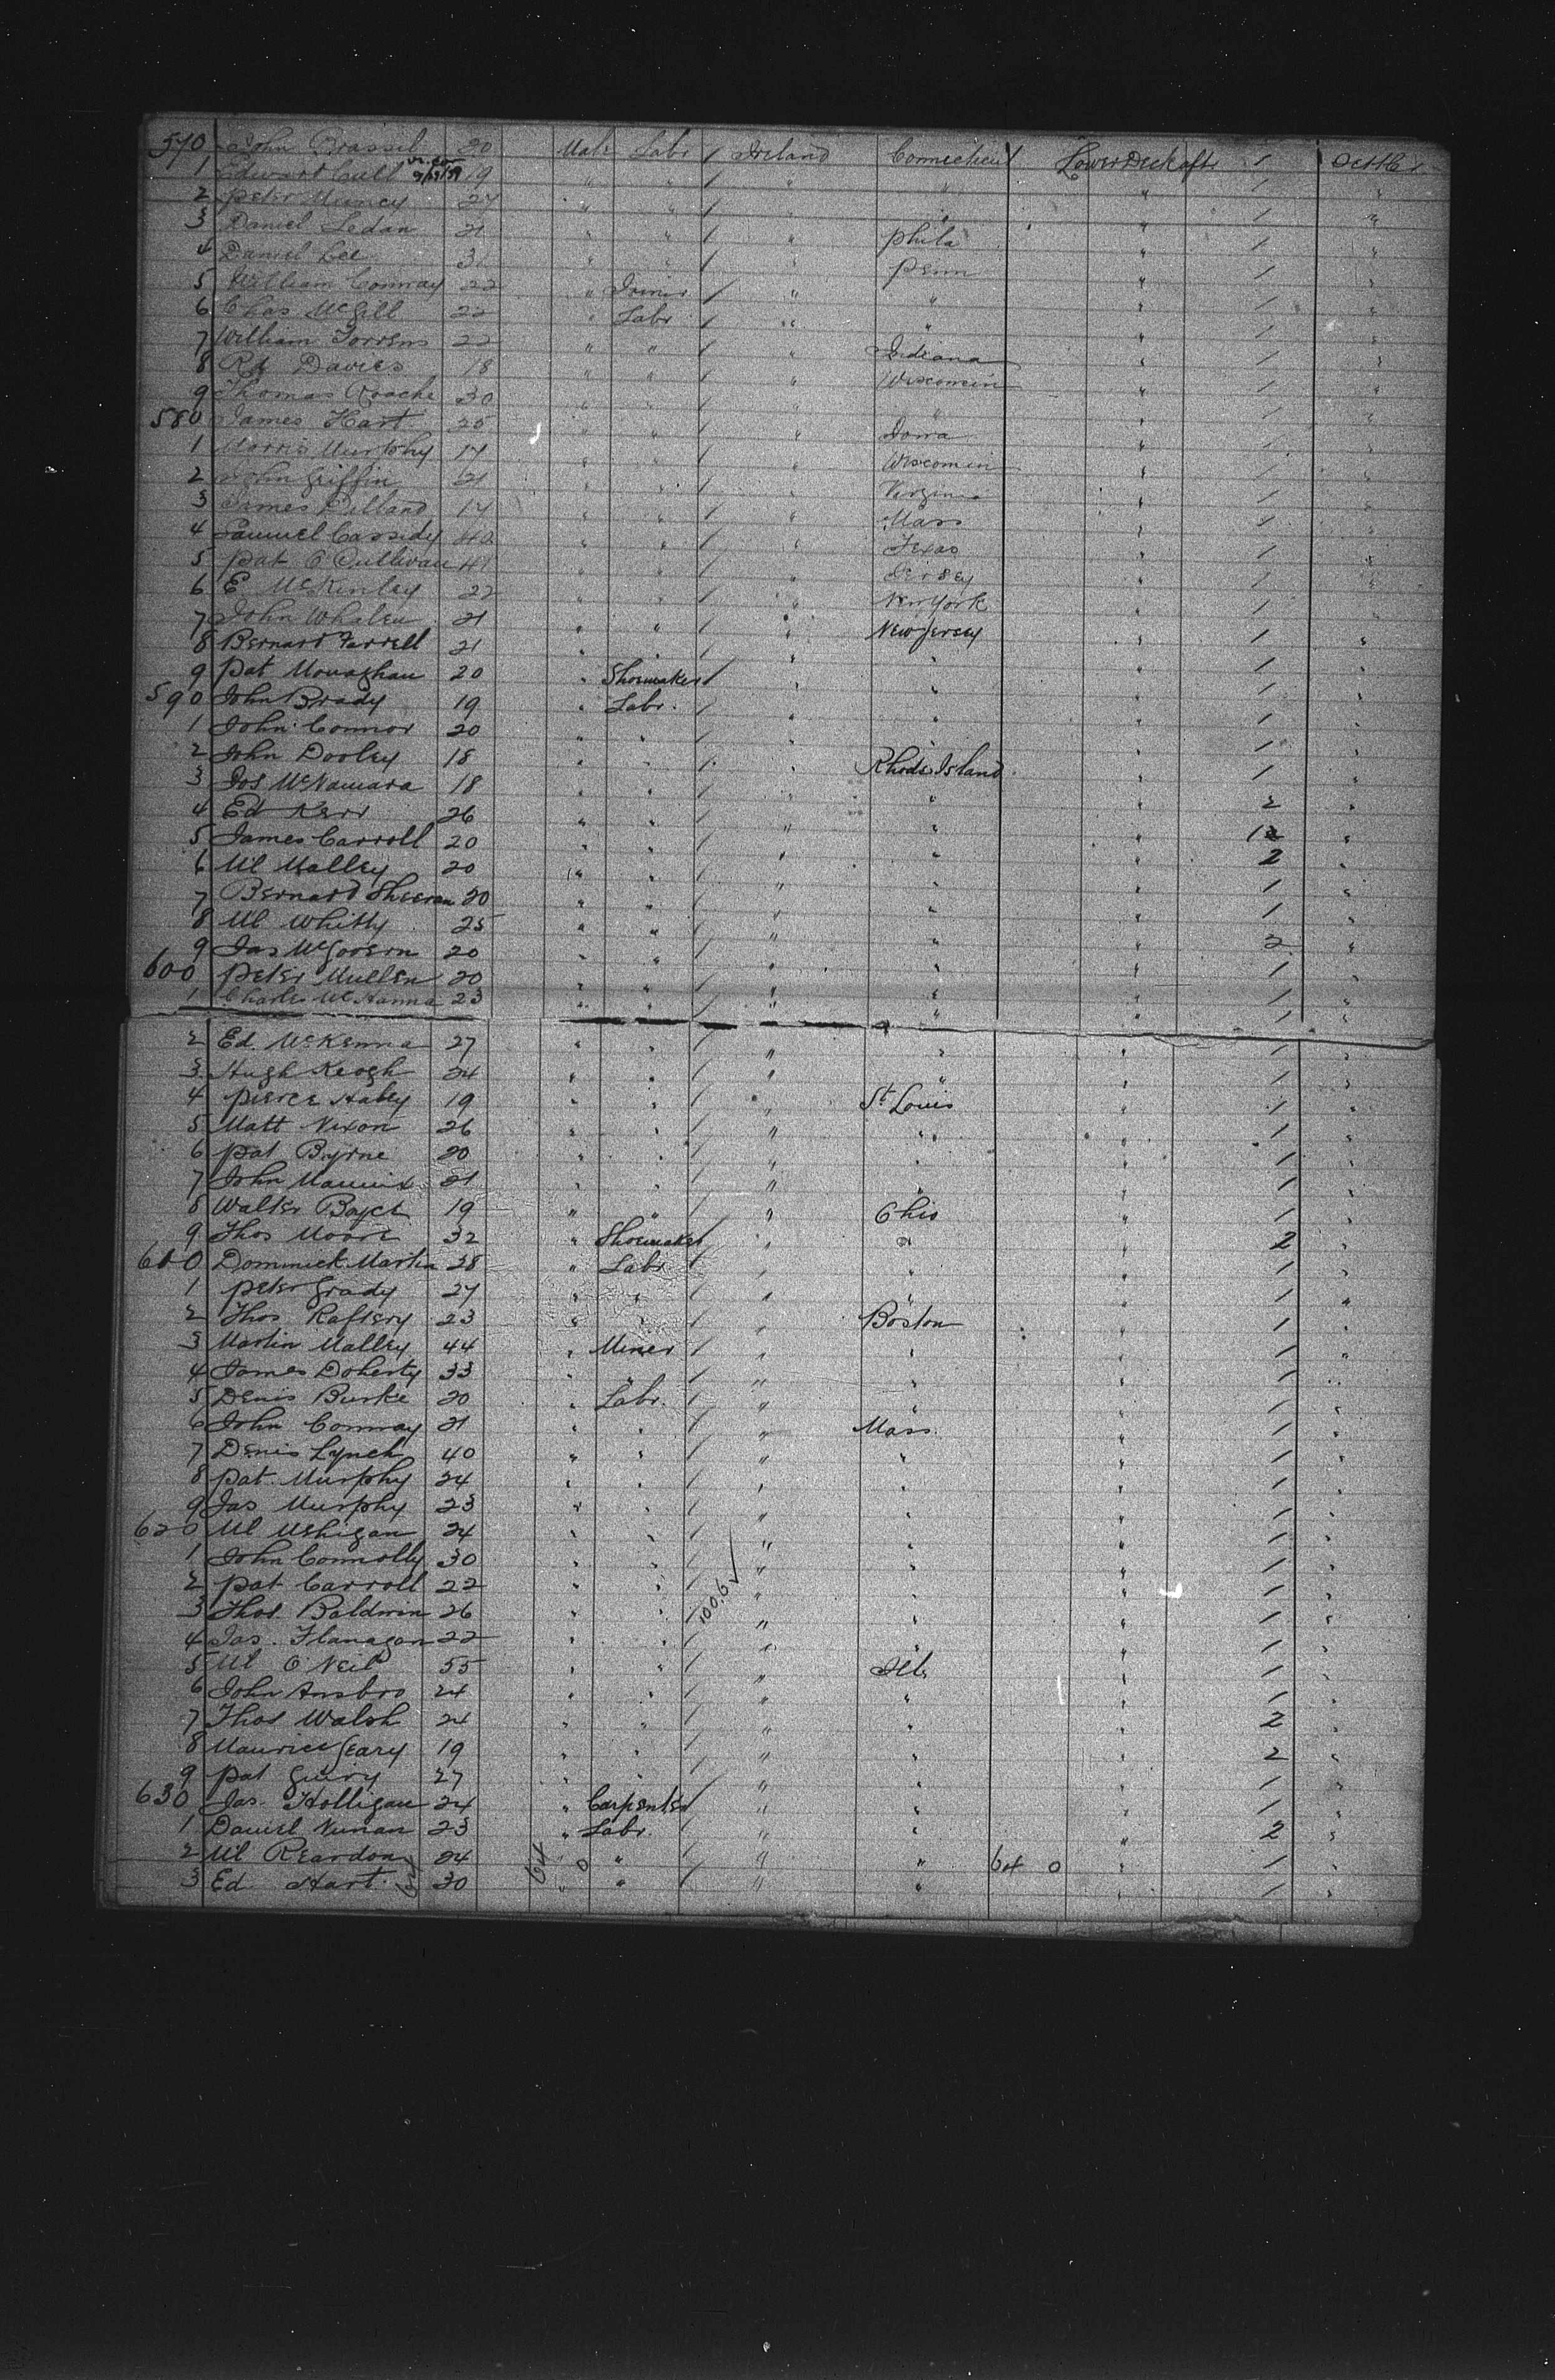 570 John Brassil 20 Male Labr / Ireland Connecticut Lower Deck aft 1 Oct 16
1 Edward Cull 19 " " / " " " 1 "
2 Peter 27 " " / " " " 1 "
3 Daniel Sedan 21 " " / " Phila " 1 "
4 Daniel Lee " " / " Penn " 1 "
5 William Conway 22 " / " " " 1 "
6 Chas McGill 22 " Labr / " " " 1 "
7 William Torrens 22 " " / " Indiana " 1 "
8 Rd Davies 18 " " / " Wisconsin " 1 "
9 Thomas Roache 30 " " / " " " 1 "
580 James Hart 25 " " / " Iowa " 1 "
1 Morris Murphy 17 " " / " Wisconsin " 1 "
2 John Griffin 21 " " / " Virginia " 1 "
3 James Dilland 17 " " / " Mass " 1 "
4 Samuel Cassidy 40 " " / " Texas " 1 "
5 Pat O'Sullivan 41 " " / " Jersey " 1 "
6 E McKinley 22 " " / " New York " 1 "
7 John Whalen 21 " " / " New Jersey " 1 "
8 Bernard Farrell 21 " " / " " " 1 "
9 Pat Monaghan 20 " Shoemaker / " " " 1 "
590 John Brady 19 " Labr. / " " " 1 "
1 John Connor 20 " " / " " " 1 "
2 John Dooley 18 " " / " Rhode Island " 1 "
3 Jos McNamara 18 " " / " " " 2 "
4 Ed Kerr 26 " " / " " " 12 "
5 James Carroll 20 " " / " " " 2 "
6 Ml Malley 20 " " / " " " 1 "
7 Bernard Sheeran 20 " " / " " " 1 "
8 Ml Whitty 25 " " / " " " 2 "
9 Jas McGovern 20 " " / " " " 1 "
600 Peter Mullen 20 " " / " " " 1 "
1 Charles McHanna 23 " " / " " " 1 "
2 Ed. McKenna 27 " " / " " " 1 "
3 Hugh Keogh 24 " " / " " " 1 "
4 Pierce Habey 19 " " / " St Louis " 1 "
5 Matt Nixon 26 " " / " " " 1 "
6 Pat Byrne 20 " " / " " " 1 "
7 John Mannix 21 " " / " " " 1 "
8 Walter Boyce 19 " " / " Ohio " 1 "
9 Thos Moore 32 " Shoemaker / " " " 2 "
610 Dominick Martin 28 " Labr / " " " 1 "
1 Peter Grady 27 " " / " " " 1 "
2 Thos Raftery 23 " " / " Boston " 1 "
3 Martin Malley 44 " Miner / " " " 1 "
4 James Doherty 33 " " / " " " 1 "
5 Denis Burke 20 " Labr. / " " " 1 "
6 John Conway 21 " " / " Mass " 1 "
7 Denis Lynch 40 " " / " " " 1 "
8 Pat Murphy 24 " " / " " " 1 "
9 Jas Murphy 23 " " / " " " 1 "
620 Ml Mehigan 24 " " / " " " 1 "
1 John Connolly 30 " " / " " " 1 "
2 Pat Carroll 22 " " / 100.6 ✓ " " " 1 "
3 Thos. Baldwin 26 " " / " " " 1 "
4 Jas. Flanagan 22 " " / " " " 1 "
5 Ml O'Neil 55 " " / " Ills " 1 "
6 John Ansbro 24 " " / " " " 1 "
7 Thos Walsh 24 " " / " " " 2 "
8 Maurice Geary 19 " " / " " " 2 "
9 Pat Guiry 27 " " / " " " 1 "
630 Jas. Holligan 24 " Carpenter / " " " 1 "
1 Daniel Nunan 23 " Labr. / " " " 2 "
2 Ml Reardon 24 64 0 " " / " " 64 0 " 1 "
3 Ed Hart 64 30 " " / " " " 1 "